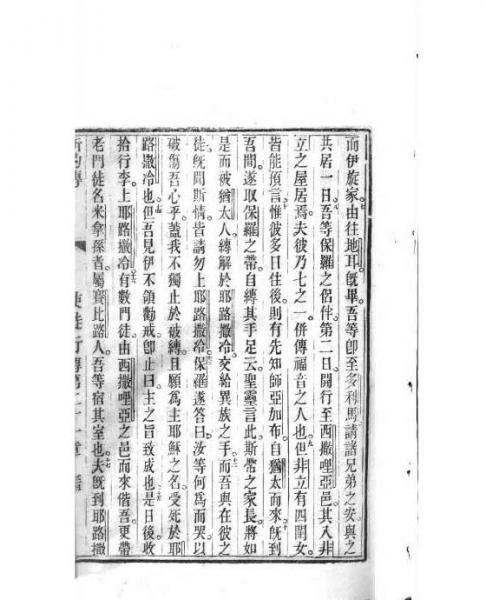 而伊旋家由往地耳既畢吾等卽至多利馬請諸兄弟之安與之
共居一日吾等保羅之侶伴第二日開行至西撒哩亞邑其入非
立之屋居焉夫彼乃七之一併傳福音之人也但非立有四閨女
皆能預言惟彼多日住後則有先知師亞加布自猶太而來旣到
吾間遂取保羅之帶自縛其手足云聖靈言此斯帶之家長將如
是而被猶太人縛解於耶路撒冷交給異族之手而吾與在彼之
徒旣聞斯情皆請勿上耶路撒冷保羅遂答曰汝等何為而哭以
破傷吾心乎蓋我不獨止於破縛且願為主耶穌之名受死於耶
路撒冷也但吾見伊不領勸戒卽止曰主之旨致成也是日後收
拾行李上耶路撒冷有數門徒由西撒哩亞之邑而來偕吾更帶
老門徒名米拿孫者屬賽比路人吾等宿其室也夫旣到耶路撒
使徒行傳第二十一章